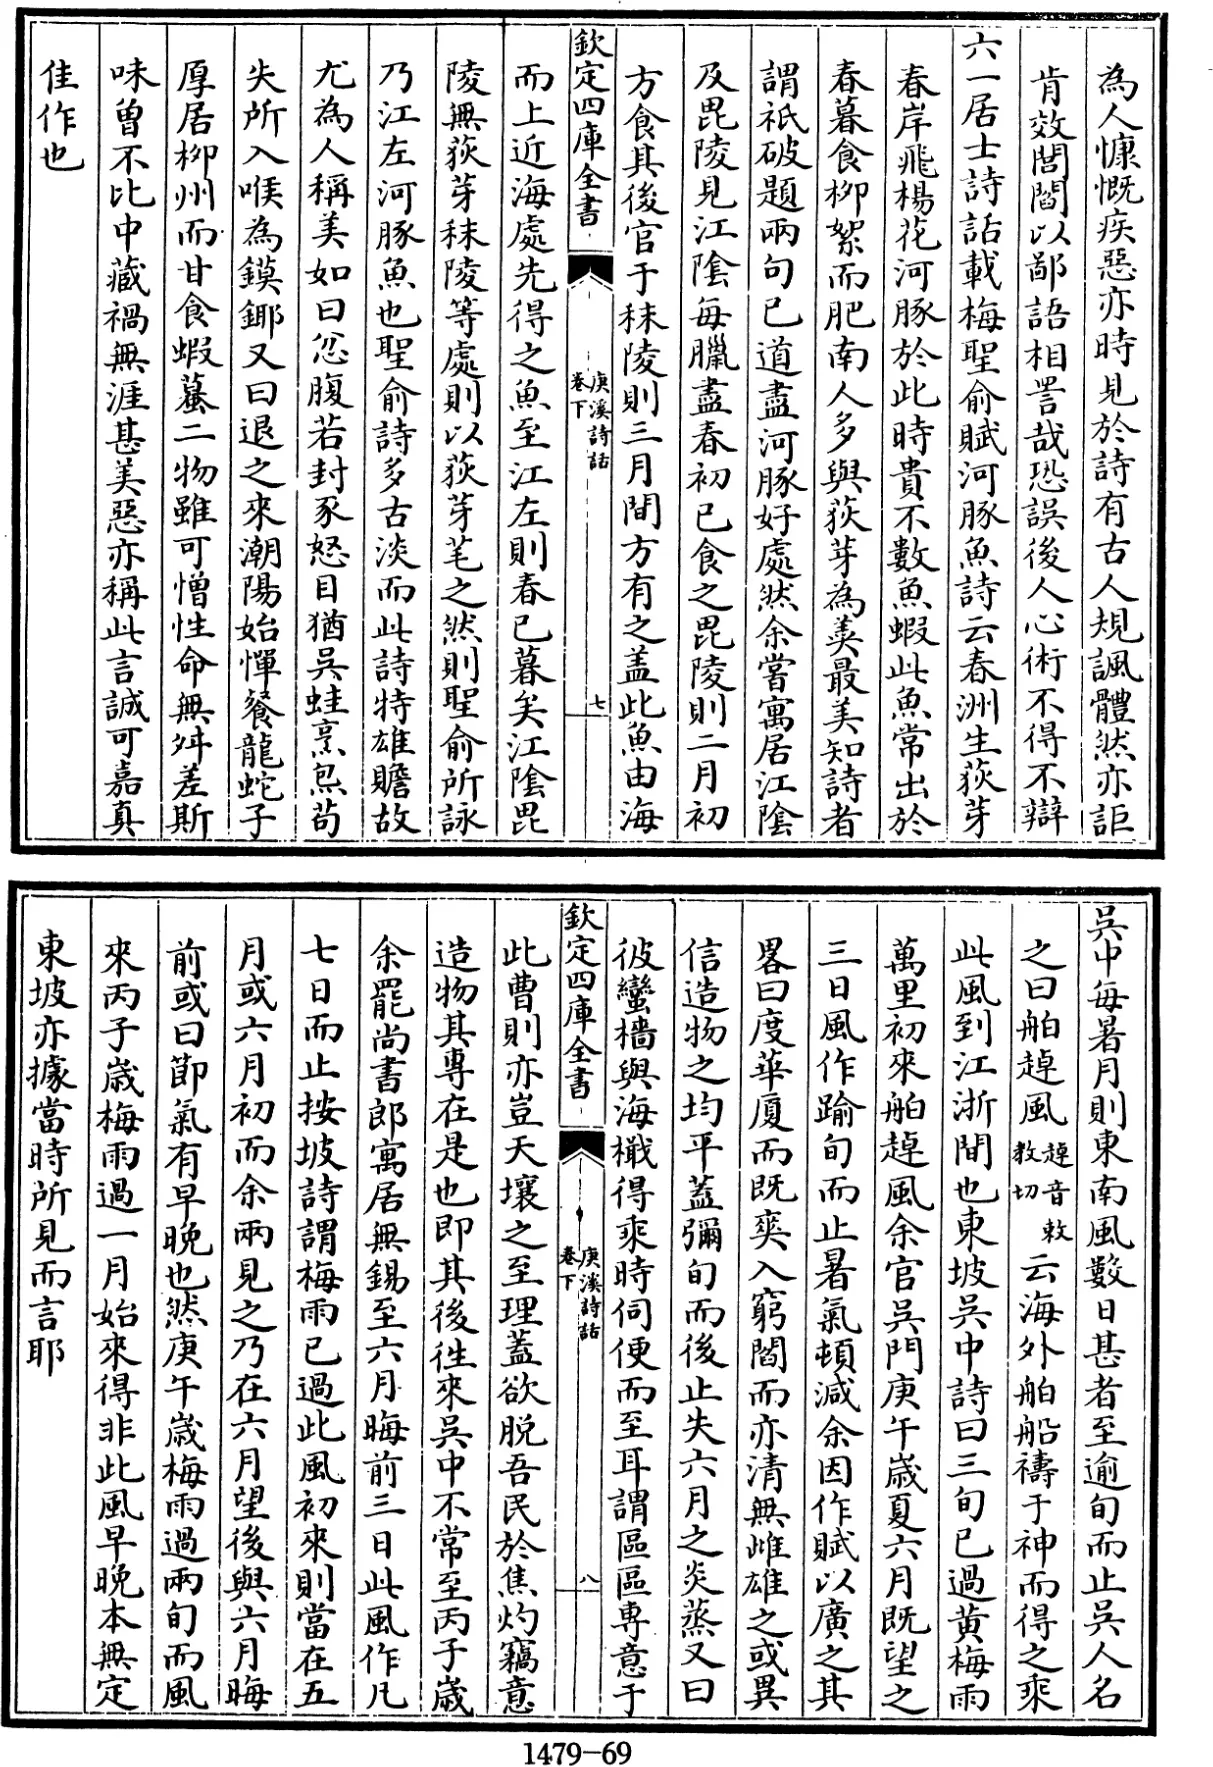 為人慷慨疾惡亦時見於詩有古人規諷體然亦詎
肯效閭閻以鄙語相詈哉恐誤後人心術不得不辯
六一居士詩話載梅聖俞賦河豚魚詩云春洲生荻芽
春岸飛楊花河豚於此時貴不數魚蝦此魚常出於
春暮食柳絮而肥南人多與荻芽為羮最美知詩者
謂祇破題兩句已道盡河豚好處然余嘗寓居江陰
及毘陵見江陰每臘盡春初已食之毘陵則二月初
方食其後官于秣陵則三月間方有之盖此魚由海
欽定四庫全書
庚溪詩話
卷下
七
而上近海處先得之魚至江左則春已暮矣江陰毘
陵無荻芽秣陵等處則以荻芽芼之然則聖俞所詠
乃江左河豚魚也聖俞詩多古淡而此詩特雄贍故
尤為人稱美如曰忿腹若封豕怒目猶吳蛙烹炰苟
失所入喉為鏌鎁又曰退之來潮陽始憚餐龍蛇子
厚居柳州而甘食蝦蟇二物雖可憎性命無舛差斯
味曽不比中藏禍無涯甚美惡亦稱此言誠可嘉真
佳作也
吳中每暑月則東南風數日甚者至逾旬而止吳人名
之曰舶趠風趠音敕教切云海外舶船禱于神而得之乘
此風到江浙間也東坡吳中詩曰三旬已過黃梅雨
萬里初來舶趠風余官吳門庚午歲夏六月既望之
三日風作踰旬而止暑氣頓減余因作賦以廣之其
畧曰度華廈而既奕入窮閻而亦清無雌雄之或異
信造物之均平蓋彌旬而後止失六月之炎蒸又曰
彼蠻檣與海檝得乘時伺便而至耳謂區區専意于
欽定四庫全書
庚溪詩話
卷下
八
此曹則亦豈天壤之至理蓋欲脱吾民於焦灼竊意
造物其專在是也即其後徃來吳中不常至丙子歲
余罷尚書郎寓居無錫至六月晦前三日此風作凡
七日而止按坡詩謂梅雨已過此風初來則當在五
月或六月初而余兩見之乃在六月望後與六月晦
前或曰節氣有早晚也然庚午歲梅雨過兩旬而風
來丙子歲梅雨過一月始來得非此風早晚本無定
東坡亦據當時所見而言耶
1479-69